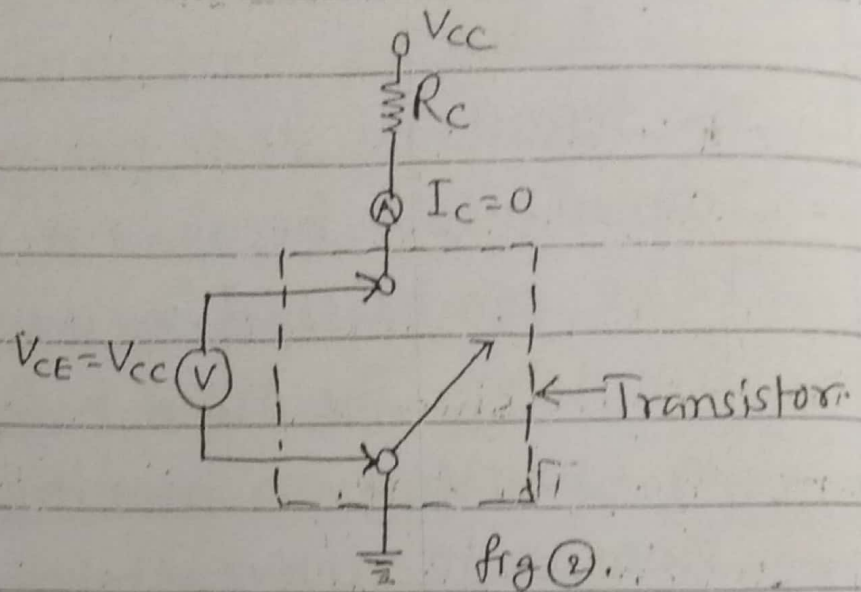 VCC
RC
A IC=0
VCE=VCC V
Transistor.
fig 2...